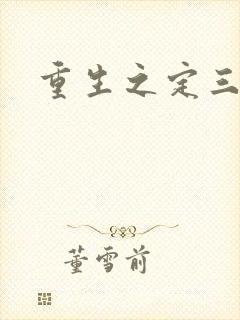 重生之定三
董雪前